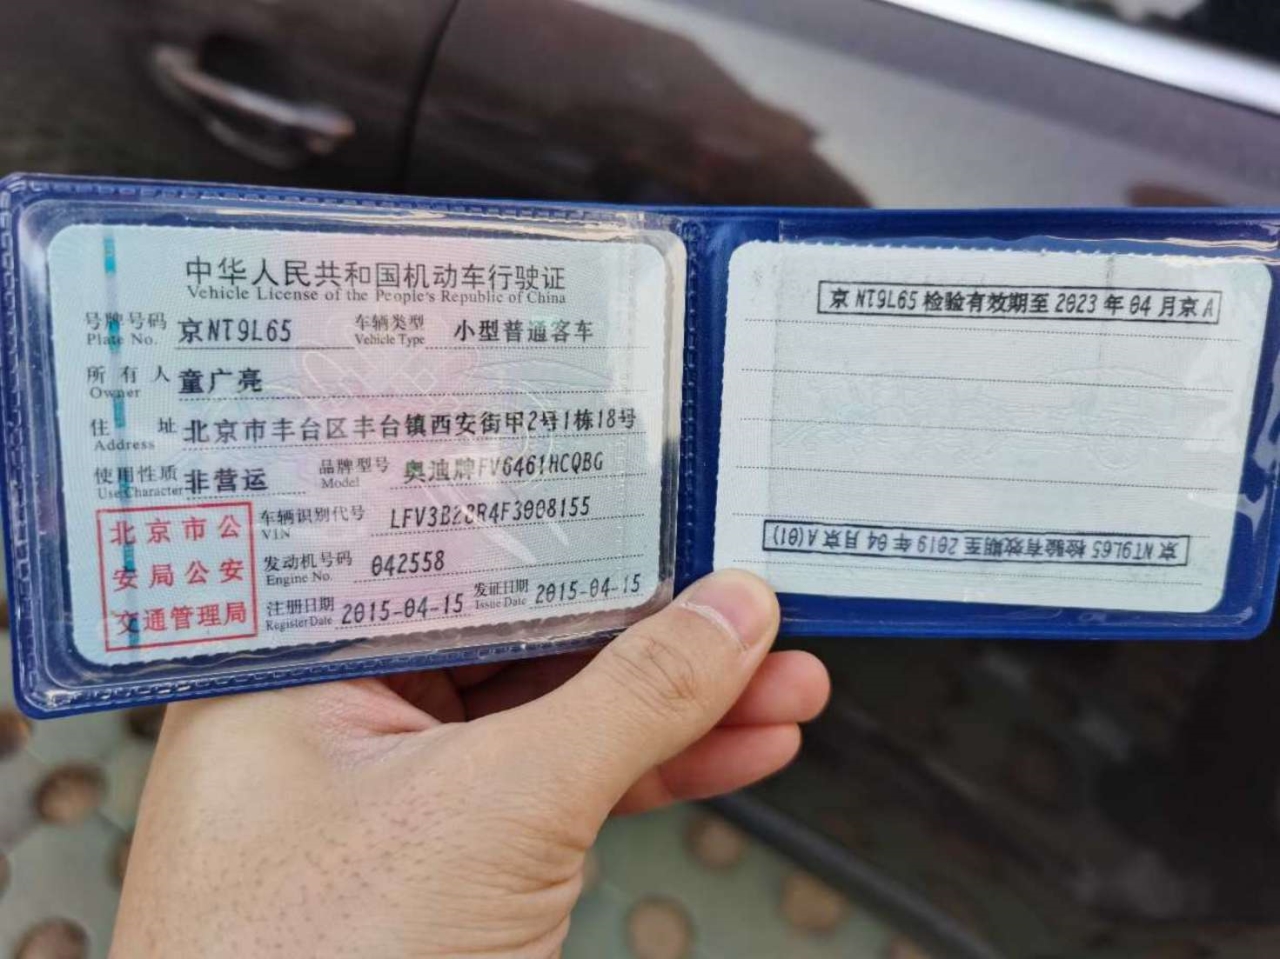 中华人民共和国机动车行驶证
Vehicle License of the People's Republic of China
号牌号码 京NT9L65 车辆类型 小型普通客车
Plate No. Vehicle Type
所有人 童广亮
Owner
住址 北京市丰台区丰台镇西安街甲2号1栋18号
Address
使用性质 非营运 品牌型号 奥迪牌FV6461HCQBG
Use Character Model
北京市公安局公安交通管理局
车辆识别代号 LFV3B28R4F3008155
VIN
发动机号码 042558
Engine No.
注册日期 2015-04-15 发证日期 2015-04-15
Register Date Issue Date
京NT9L65检验有效期至2023年04月京A
京NT9L65检验有效期至2019年04月京A(01)